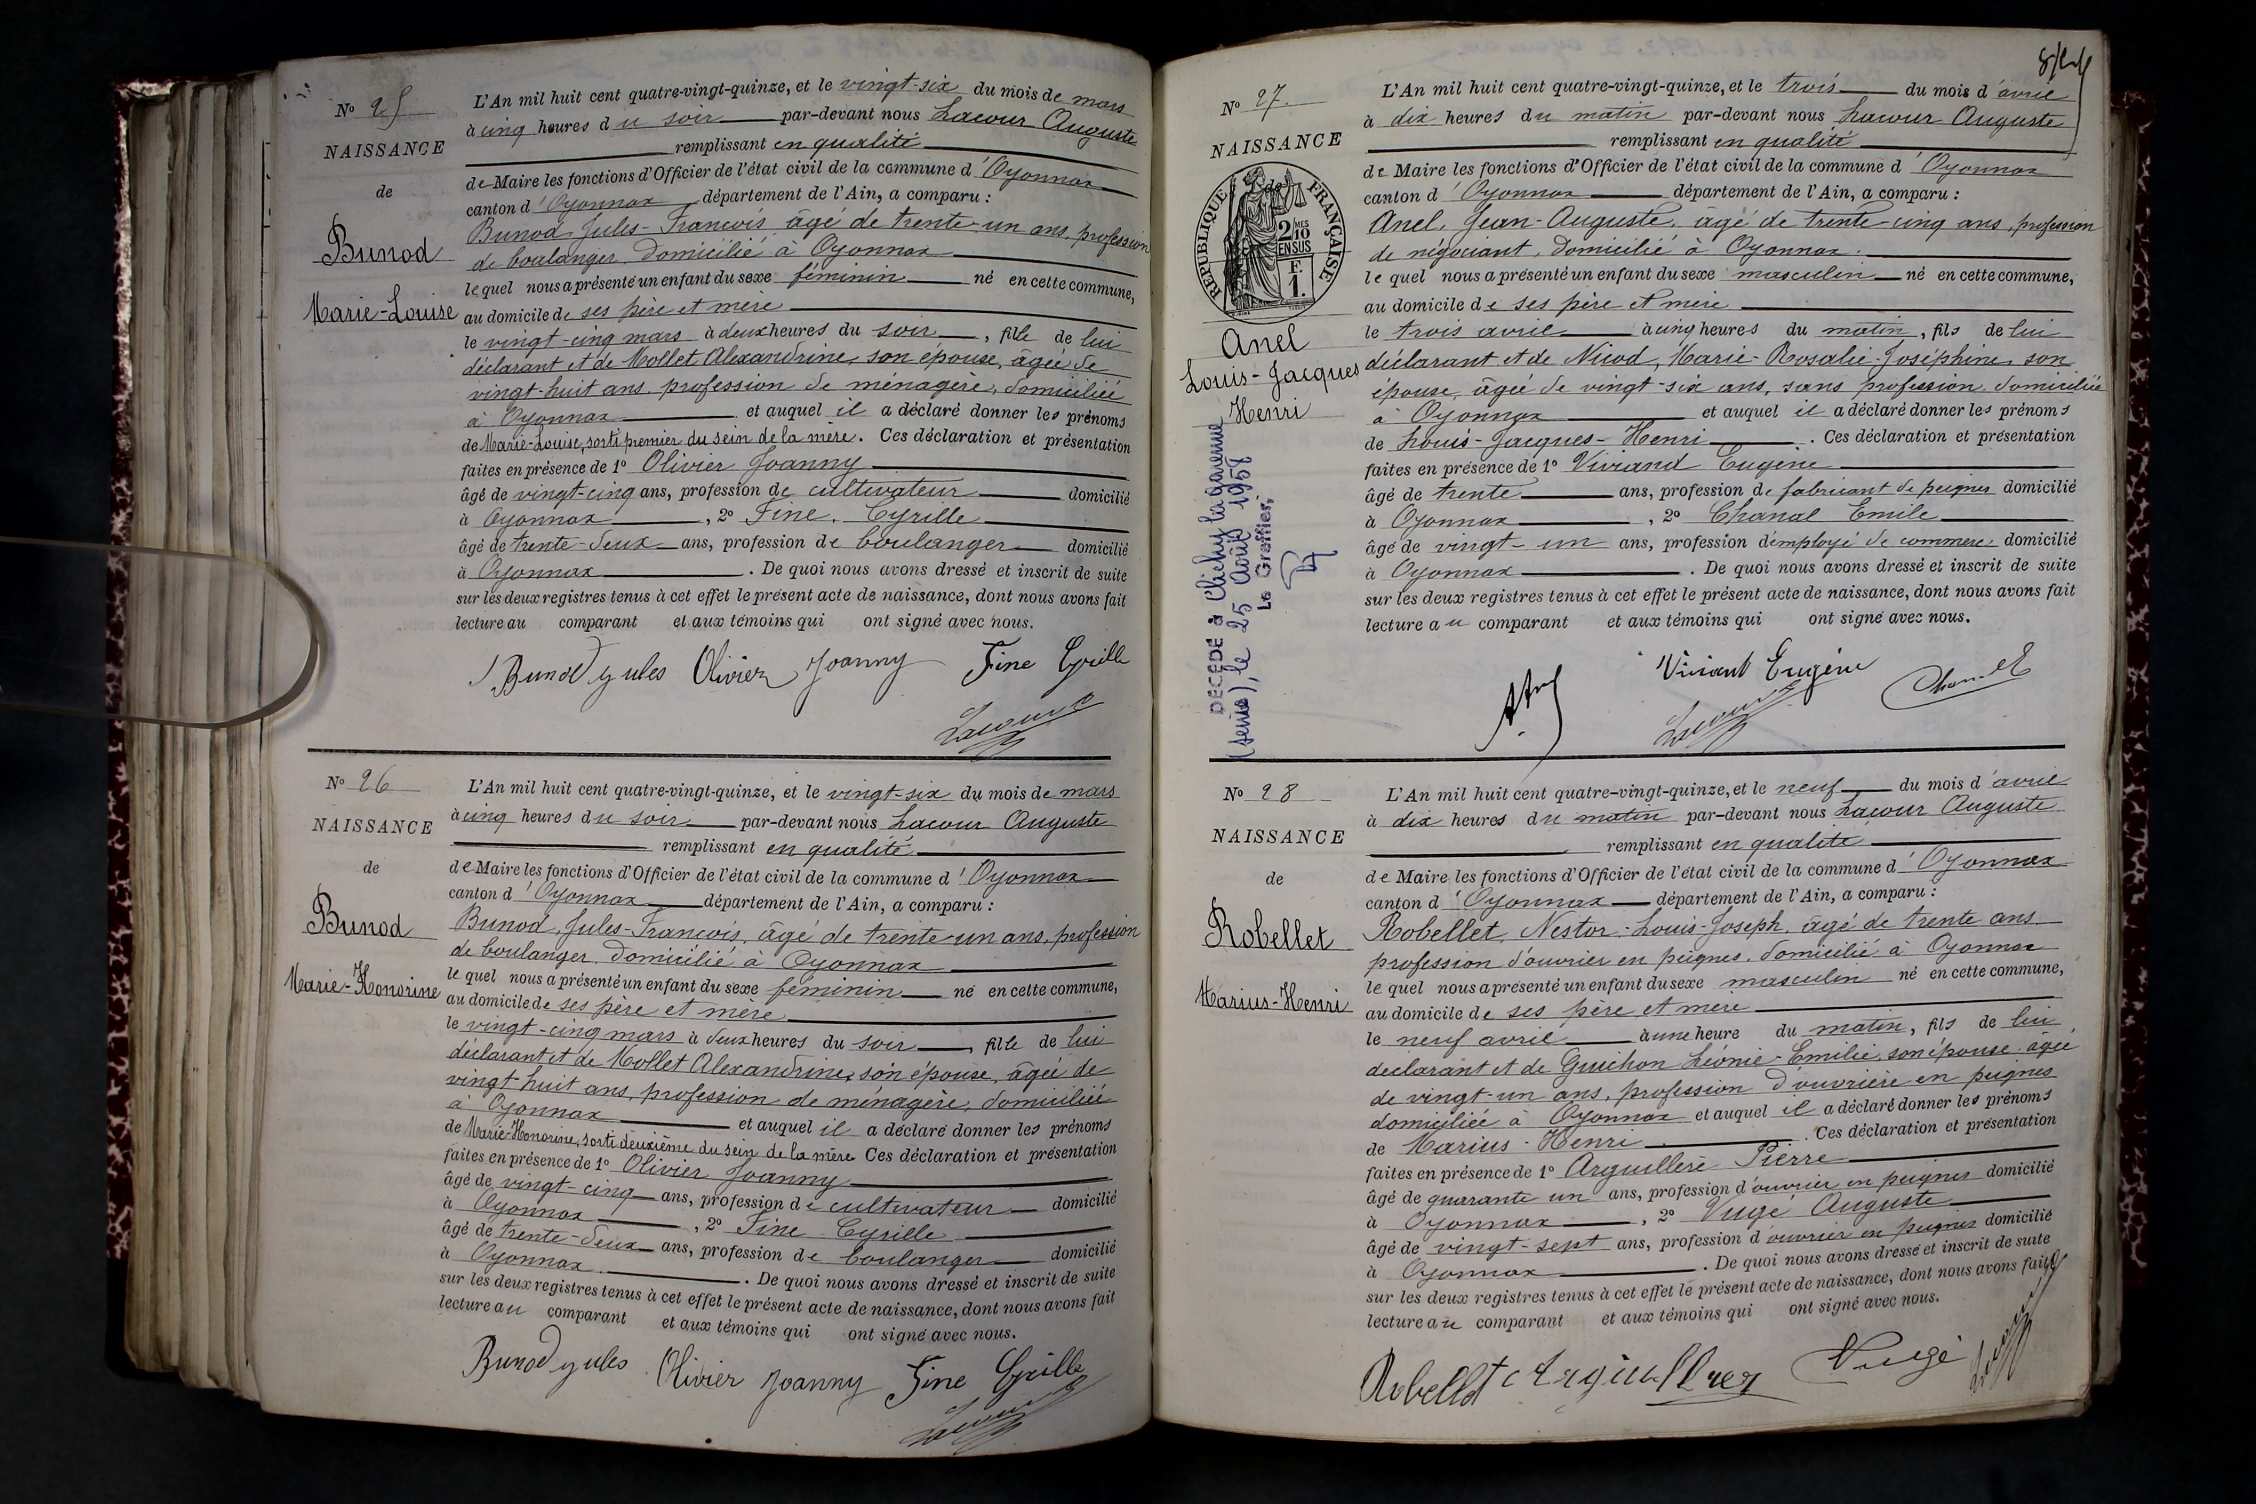 Nº 25
NAISSANCE
de
Bunod
Marie-Louise
L'An mil huit cent quatre-vingt-quinze, et le vingt-six du mois de mars
à cinq heures du soir par-devant nous Lacour Auguste
remplissant en qualité
de Maire les fonctions d'Officier de l'état civil de la commune d'Oyonnax
canton d'Oyonnax département de l'Ain, a comparu :
Bunod Jules-François, âgé de trente-un ans, profession
de boulanger, domicilié à Oyonnax
lequel nous a présenté un enfant du sexe féminin né en cette commune,
au domicile de ses père et mère
le vingt-cinq mars à deux heures du soir, fille de lui
déclarant et de Mollet Alexandrine, son épouse, âgée de
vingt-huit ans, profession de ménagère, domiciliée
à Oyonnax et auquel il a déclaré donner les prénoms
de Marie-Louise, sorti premier du sein de la mère. Ces déclaration et présentation
faites en présence de 1º Olivier Joanny
âgé de vingt-cinq ans, profession de cultivateur domicilié
à Oyonnax, 2º Fine Cyrille
âgé de trente-deux ans, profession de boulanger domicilié
à Oyonnax. De quoi nous avons dressé et inscrit de suite
sur les deux registres tenus à cet effet le présent acte de naissance, dont nous avons fait
lecture au comparant et aux témoins qui ont signé avec nous.
Bunod Jules Olivier Joanny Fine Cyrille
Lacour
Nº 26
NAISSANCE
de
Bunod
Marie-Honorine
L'An mil huit cent quatre-vingt-quinze, et le vingt-six du mois de mars
à cinq heures du soir par-devant nous Lacour Auguste
remplissant en qualité
de Maire les fonctions d'Officier de l'état civil de la commune d'Oyonnax
canton d'Oyonnax département de l'Ain, a comparu :
Bunod, Jules-François, âgé de trente-un ans, profession
de boulanger, domicilié à Oyonnax
lequel nous a présenté un enfant du sexe féminin né en cette commune,
au domicile de ses père et mère
le vingt-cinq mars à deux heures du soir, fille de lui
déclarant et de Mollet Alexandrine, son épouse, âgée de
vingt-huit ans, profession de ménagère, domiciliée
à Oyonnax et auquel il a déclaré donner les prénoms
de Marie-Honorine, sorti deuxième du sein de la mère Ces déclaration et présentation
faites en présence de 1º Olivier Joanny
âgé de vingt-cinq ans, profession de cultivateur domicilié
à Oyonnax, 2º Fine Cyrille
âgé de trente-deux ans, profession de boulanger domicilié
à Oyonnax. De quoi nous avons dressé et inscrit de suite
sur les deux registres tenus à cet effet le présent acte de naissance, dont nous avons fait
lecture au comparant et aux témoins qui ont signé avec nous.
Bunod Jules Olivier Joanny Fine Cyrille
Lacour
Nº 27.
NAISSANCE
RÉPUBLIQUE FRANÇAISE
2 MES
10
EN SUS
F.
1.
Anel
Louis-Jacques
Henri
DÉCÉDÉ à Clichy la garenne
(seine), le 25 Août 1958
Le Greffier,
L'An mil huit cent quatre-vingt-quinze, et le trois du mois d'avril
à dix heures du matin par-devant nous Lacour Auguste
remplissant en qualité
de Maire les fonctions d'Officier de l'état civil de la commune d'Oyonnax
canton d'Oyonnax département de l'Ain, a comparu :
Anel, Jean-Auguste, âgé de trente-cinq ans, profession
de négociant, domicilié à Oyonnax.
lequel nous a présenté un enfant du sexe masculin né en cette commune,
au domicile de ses père et mère
le trois avril à cinq heures du matin, fils de lui
déclarant et de Nicod, Marie-Rosalie-Joséphine, son
épouse, âgée de vingt-six ans, sans profession, domiciliée
à Oyonnax et auquel il a déclaré donner les prénoms
de Louis-Jacques-Henri. Ces déclaration et présentation
faites en présence de 1º Viviand Eugène
âgé de trente ans, profession de fabricant de peignes domicilié
à Oyonnax, 2º Chanal Emile
âgé de vingt-un ans, profession d'employé de commerce domicilié
à Oyonnax. De quoi nous avons dressé et inscrit de suite
sur les deux registres tenus à cet effet le présent acte de naissance, dont nous avons fait
lecture au comparant et aux témoins qui ont signé avec nous.
Viviant Eugène
Lacour
Nº 28
NAISSANCE
de
Robellet
Marius-Henri
L'An mil huit cent quatre-vingt-quinze, et le neuf du mois d'avril
à dix heures du matin par-devant nous Lacour Auguste
remplissant en qualité
de Maire les fonctions d'Officier de l'état civil de la commune d'Oyonnax
canton d'Oyonnax département de l'Ain, a comparu :
Robellet, Nestor-Louis-Joseph, âgé de trente ans
profession d'ouvrier en peignes, domicilié à Oyonnax
lequel nous a présenté un enfant du sexe masculin né en cette commune,
au domicile de ses père et mère
le neuf avril à une heure du matin, fils de lui
déclarant et de Guichon Léonie-Emilie, son épouse, âgée
de vingt-un ans, profession d'ouvrière en peignes
domiciliée à Oyonnax et auquel il a déclaré donner les prénoms
de Marius-Henri. Ces déclaration et présentation
faites en présence de 1º Arguillère Pierre
âgé de quarante un ans, profession d'ouvrier en peignes domicilié
à Oyonnax, 2º Vugé Auguste
âgé de vingt-sept ans, profession d'ouvrier en peignes domicilié
à Oyonnax. De quoi nous avons dressé et inscrit de suite
sur les deux registres tenus à cet effet le présent acte de naissance, dont nous avons fait
lecture au comparant et aux témoins qui ont signé avec nous.
Robellet
Lacour